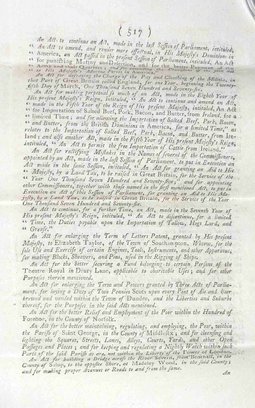 ( 517 )
An Act to continue an Act, made in the last Session of Parliament, intituled,
" An Act to amend, and render more effectual, in His Majesty's Dominions in
America, an Act passed in the present Session of Parliament, intituled, An Act
for punishing Mutiny and Desertion, and for the better Payment of the
An Act for defraying the Charge of the Pay and Cloathing of the Militia, in
that Part of Great Britain called England, for One Year, beginning the Twenty-
fifth Day of March, One Thousand Seven Hundred and Seventy-six.
An Act for making perpetual so much of an Act, made in the Eighth Year of
His present Majesty's Reign, intituled, " An Act to continue and amend an Act,
" made in the Fifth Year of the Reign of His present Majesty, intituled, An Act
" for Importation of Salted Beef, Pork, Bacon, and Butter, from Ireland, for a
" limited Time; and for allowing the Importation of Salted Beef, Pork, Bacon,
" and Butter, from the British Dominions in America, for a limited Time," as
relates to the Importation of Salted Beef, Pork, Bacon, and Butter, from Ire-
land; and also another Act, made in the Fifth Year of His present Majesty's Reign,
intituled, " An Act to permit the free Importation of Cattle from Ireland."
An Act for rectifying Mistakes in the Names of several of the Commissioners,
appointed by an Act, made in the last Session of Parliament, to put in Execution an
Act made in the same Session, intituled, " An Act for granting an Aid to His
" Majesty, by a Land Tax, to be raised in Great Britain, for the Service of the
Year One Thousand Seven Hundred and Seventy-five," and for appointing
other Commissioners, together with those named in the first mentioned Act, to put in
Execution an Act of this Session of Parliament, for granting an Aid to His Ma-
jesty, by a Land Tax, to be raised in Great Britain, for the Service of the Year
One Thousand Seven Hundred and Seventy-six.
An Act to continue, for a further Time, an Act, made in the Seventh Year of
His present Majesty's Reign, intituled, " An Act to discontinue, for a limited
" Time, the Duties payable upon the Importation of Tallow, Hogs Lard, and
" Grease."
An Act for enlarging the Term of Letters Patent, granted by His present
Majesty, to Elizabeth Taylor, of the Town of Southampton, Widow, for the
sole Use and Exercise of certain Engines, Tools, Instruments, and other Apparatus,
for making Blocks, Sheavers, and Pins, used in the Rigging of Ships.
An Act for the better securing a Fund belonging to certain Persons of the
Theatre Royal in Drury Lane, applicable to charitable Uses; and for other
Purposes therein mentioned.
An Act for enlarging the Term and Powers granted by Three Acts of Parlia-
ment, for laying a Duty of Two Pennies Scots upon every Pint of Ale and Beer
brewed and vended within the Town of Dundee, and the Liberties and Suburbs
thereof, for the Purposes in the said Acts mentioned.
An Act for the better Relief and Employment of the Poor within the Hundred of
Forehoe, in the County of Norfolk.
An Act for the better maintaining, regulating, and employing, the Poor, within
the Parish of Saint George, in the County of Middlesex; and for cleansing and
lighting the Squares, Streets, Lanes, Alleys, Courts, Yards, and other Open
Passages and Places; and for keeping and regulating a Nightly Watch within such
Parts of the said Parish as are not within the Liberty of the Tower of London.
An Act for building a Bridge across the River
County of Surrey, to the opposite Shore in the said County;
and for making proper Avenues or Roads to and from the same.
An